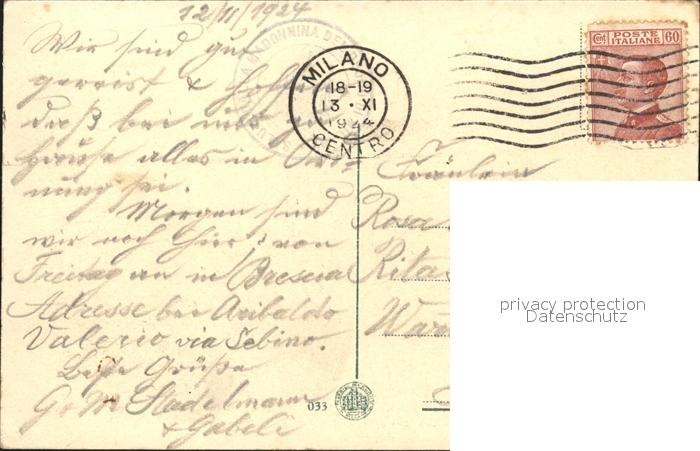 12/11/1924
Wir sind gut
gereist & hoffen
daß bei
hause alles in Ord-
nung sei.
Morgen sind
wir noch hier, von
Freitag an in Brescia
Adresse bei Aribaldo
Valerio via Sebino.
Beste Grüße
Stadelmann
+ Gabeli
MADONNINA DEL
MILANO
18-19
13 · XI
1924
CENTRO
POSTE
ITALIANE
Cent 60
Fräulein
Rosa
Rita
033
privacy protection
Datenschutz